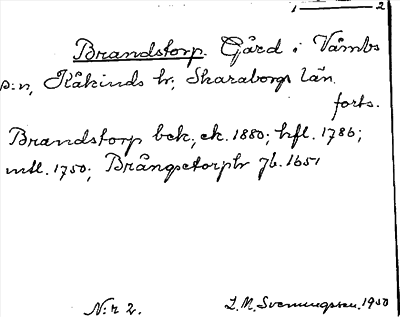 1 — 2
Brandstorp. Gård i Våmbs
s:n, Kåkinds hr, Skaraborgs län.
forts.
Brandstorp bek.; ek. 1880; hfl. 1786;
mtl. 1750; Brångsetorph Jb. 1651
N:r 2.
L. M. Svenungsson. 1930